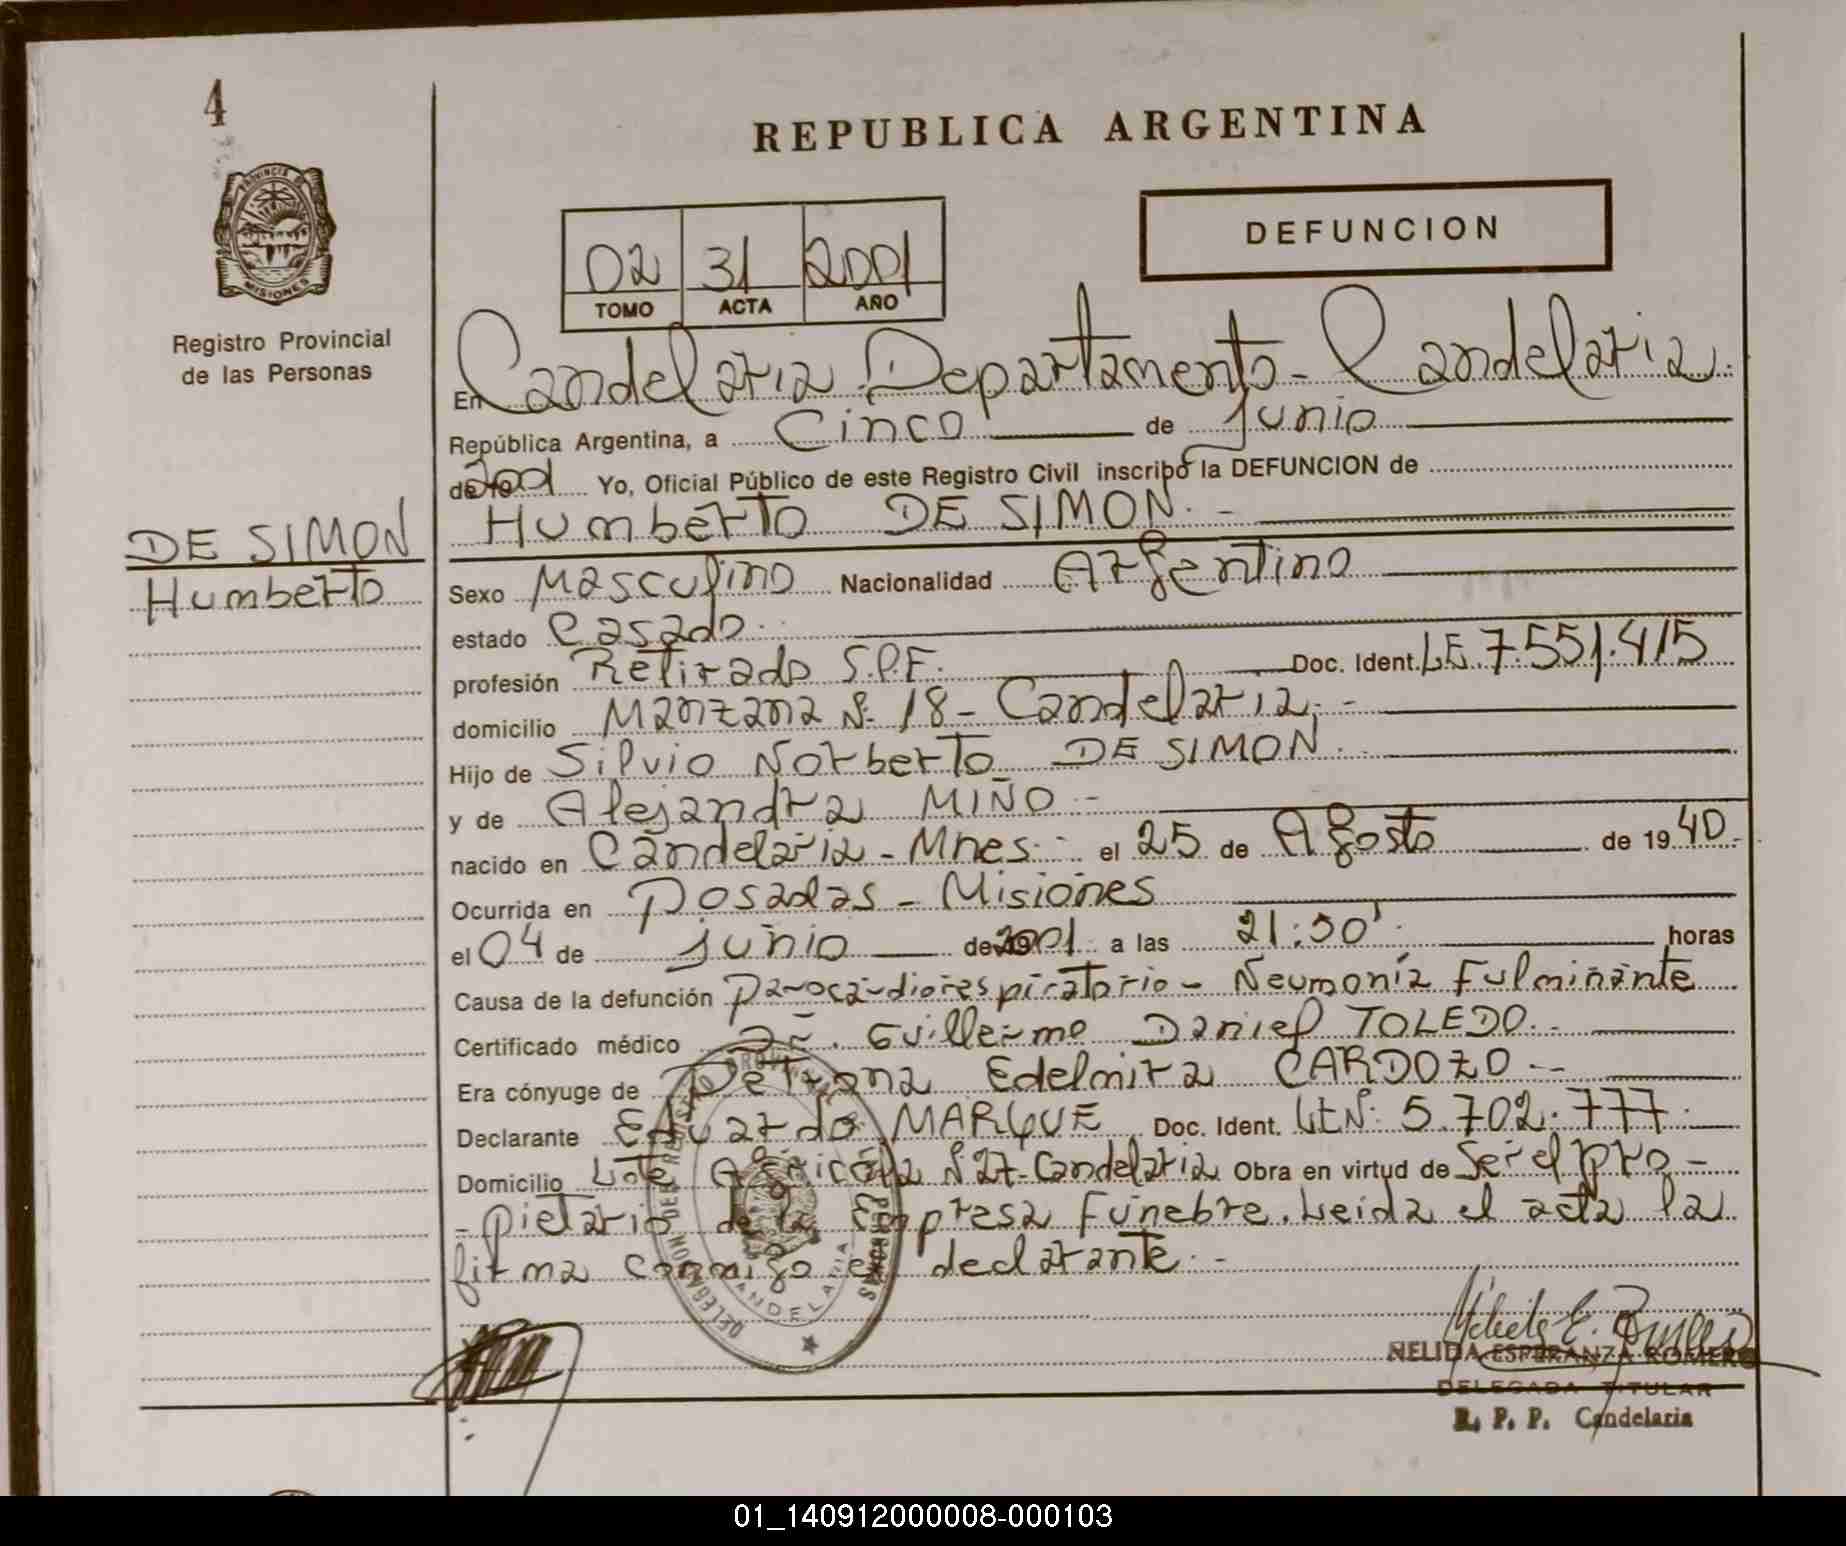 4
PROVINCIA DE
MISIONES
Registro Provincial
de las Personas
DE SIMON
Humberto
REPUBLICA ARGENTINA
02 31 2001
TOMO ACTA AÑO
DEFUNCION
En Candelaria Departamento - Candelaria.
República Argentina, a Cinco de Junio
de 2001 Yo, Oficial Público de este Registro Civil inscribo la DEFUNCION de
Humberto DE SIMON. -
Sexo Masculino Nacionalidad Argentino
estado Casado.
profesión Retirado S.P.F. Doc. Ident. LE. 7.551.415
domicilio Manzana Nº 18 - Candelaria. -
Hijo de Silvio Norberto DE SIMON.
y de Alejandra MIÑO. -
nacido en Candelaria - Mnes. el 25 de Agosto de 1940.-
Ocurrida en Posadas - Misiones
el 04 de Junio de 2001 a las 21:30' horas
Causa de la defunción Parocardiorespiratorio - Neumonía Fulminante
Certificado médico Dr. Guillermo Daniel TOLEDO. -
Era cónyuge de Petrona Edelmira CARDOZO. -
Declarante Eduardo MARQUE Doc. Ident. LE Nº 5.702.777. -
Domicilio Lote Agrícola Nº 27 - Candelaria Obra en virtud de Ser el pro-
-pietario de la Empresa Fúnebre. Leida el acta la
firma conmigo el declarante. -
DELEGACION DEL REGISTRO PROVINCIAL DE PERSONAS
CANDELARIA
NELIDA ESPERANZA ROMERO
DELEGADA TITULAR
R. P. P. Candelaria
01_140912000008-000103